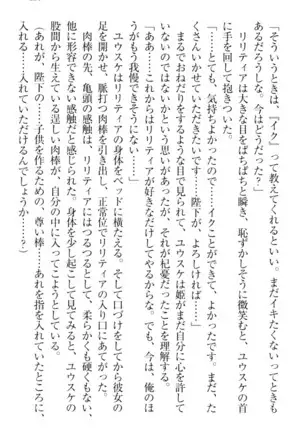 「そういうときは、『イク』って教えてくれるといい。まだイキたくないってときも
あるだろうしな。今はどうだった？」
　リリティアは大きな目をぱちぱちと瞬き、恥ずかしそうに微笑むと、ユウスケの首
に手を回して抱きついた。
「……とても、気持ちよかったので……イクことができて、よかったです。まだ、た
くさんイかせていただきたいです……陛下が、よろしければ……」
　まるでおねだりをするような目で見られて、ユウスケは姫がまだ自分に心を許して
いないのではないかという思いがあったが、それが杞憂だったことを理解する。
「ああ……これからはリリティアが好きなだけしてやるからな。でも、今は、俺のほ
うがもう我慢できそうにない……」
　ユウスケはリリティアの身体をベッドに横たえる。そして口づけをしてから彼女の
足を開かせ、脈打つ肉棒を引き出し、正常位でリリティアの入り口にあてがった。
　肉棒の先、亀頭の感触は、リリティアにはつるつるとして、柔らかくも硬くもない、
他に形容できない感触だと感じられた。身体を少し起こして見てみると、ユウスケの
股間から生えている逞しい肉棒が、自分の中に入ってこようとしている。
（あれが、陛下の……子供を作るための、尊い棒……あれを指を入れていたところに、
入れる……入れていただけるんでしょうか……？）